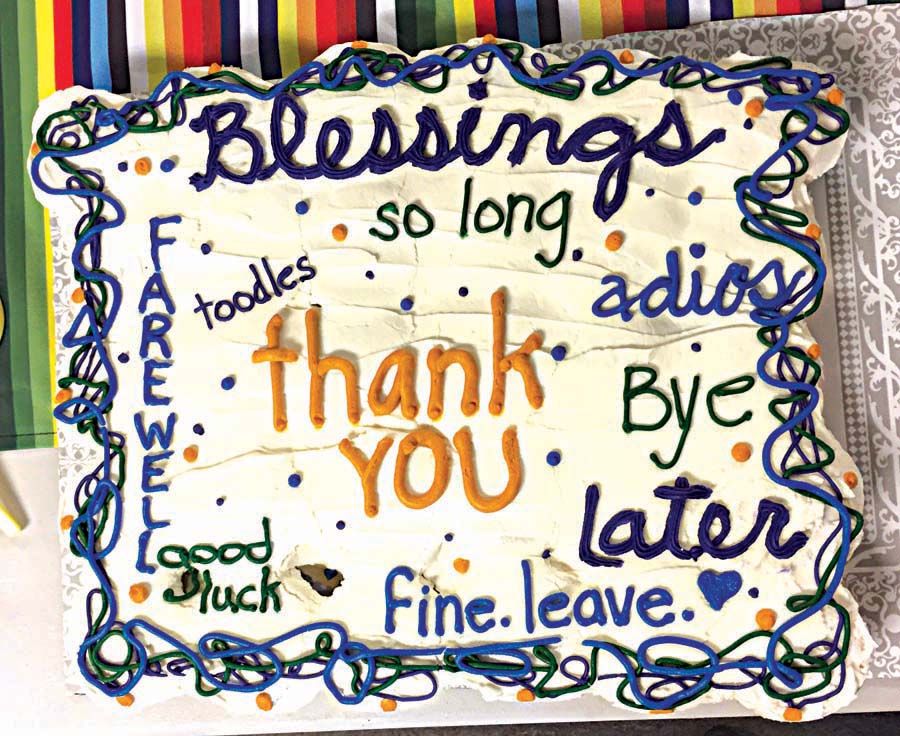 Blessings
so long
adios
toodles
FAREWELL
thank
YOU
Bye
Later
good
luck
fine. leave.